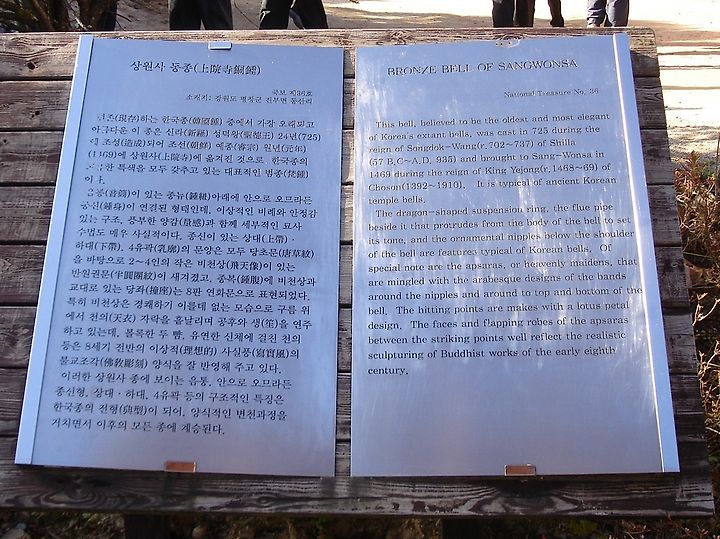 상원사 동종(上院寺銅鍾)
국보 제36호
소재지: 강원도 평창군 진부면 동산리
현존(現存)하는 한국종(韓國鍾) 중에서 가장 오래되고
아름다운 이 종은 신라(新羅) 성덕왕(聖德王) 24년(725)
에 조성(造成)되어 조선(朝鮮) 예종(睿宗) 원년(元年)
(1469)에 상원사(上院寺)에 옮겨진 것으로, 한국종의
특색을 모두 갖추고 있는 대표적인 범종(梵鍾)
이다.
음통(音筒)이 있는 종뉴(鍾紐)아래에 안으로 오므라든
종신(鍾身)이 연결된 형태인데, 이상적인 비례와 안정감
있는 구조, 풍부한 양감(量感)과 함께 세부적인 묘사
수법도 매우 사실적이다. 종신이 있는 상대(上帶)·
하대(下帶), 4유곽(乳廓)의 문양은 모두 당초문(唐草紋)
을 바탕으로 2~4인의 작은 비천상(飛天像)이 있는
반원권문(半圓圈紋)이 새겨졌고, 종복(鍾腹)에 비천상과
교대로 있는 당좌(撞座)는 8판 연화문으로 표현되었다.
특히 비천상은 경쾌하기 이를데 없는 모습으로 구름 위
에서 천의(天衣) 자락을 흩날리며 공후와 생(笙)을 연주
하고 있는데, 볼록한 두 뺨, 유연한 신체에 걸친 천의
등은 8세기 전반의 이상적(理想的) 사실풍(寫實風)의
불교조각(佛敎彫刻) 양식을 잘 반영해 주고 있다.
이러한 상원사 종에 보이는 음통, 안으로 오므라든
종신형, 상대·하대, 4유곽 등의 구조적인 특징은
한국종의 전형(典型)이 되어, 양식적인 변천과정을
거치면서 이후의 모든 종에 계승된다.
BRONZE BELL OF SANGWONSA
National Treasure No. 36
This bell, believed to be the oldest and most elegant
of Korea's extant bells, was cast in 725 during the
reign of Songdok-Wang(r. 702~737) of Shilla
(57 B,C~A,D, 935) and brought to Sang-Wonsa in
1469 during the reign of King Yejong(r,1468~69) of
Choson(1392~1910). It is typical of ancient Korean
temple bells.
The dragon-shaped suspension ring, the flue pipe
beside it that protrudes from the body of the bell to set
its tone, and the ornamental nipples below the shoulder
of the bell are features typical of Korean bells. Of
special note are the apsaras, or heavenly maidens, that
are mingled with the arabesque designs of the bands
around the nipples and around to top and bottom of the
bell. The hitting points are makes with a lotus petal
design. The faces and flapping robes of the apsaras
between the striking points well reflect the realistic
sculpturing of Buddhist works of the early eighth
century.